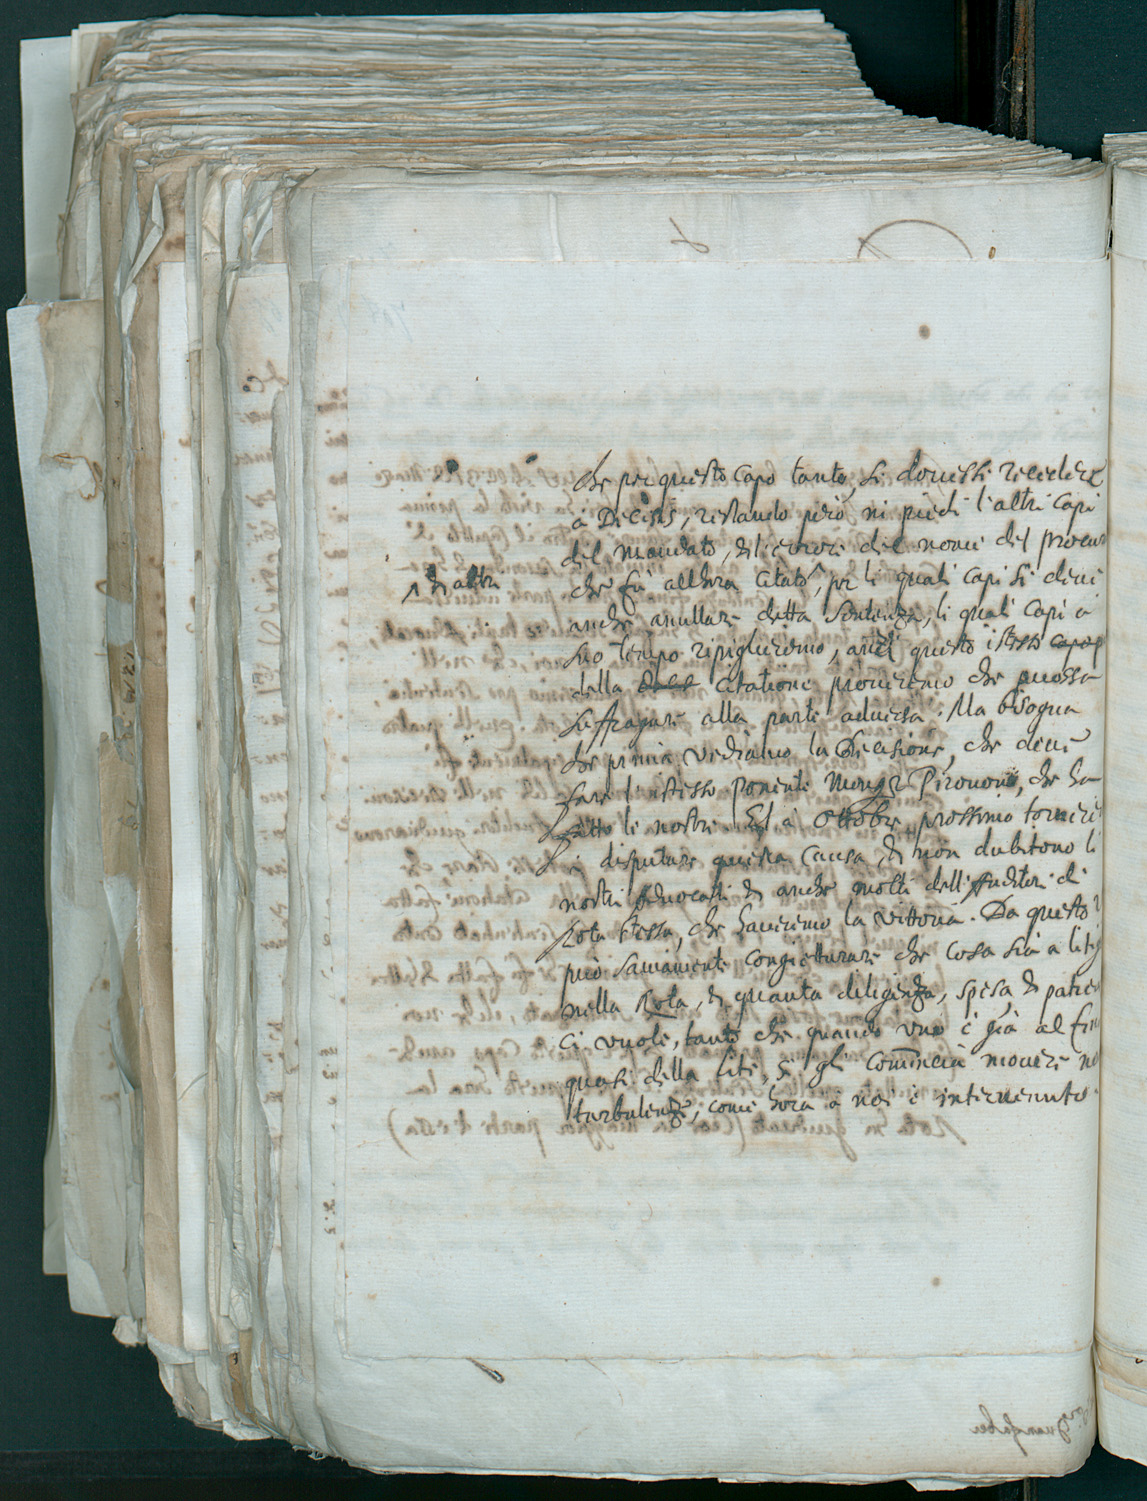 che per questo capo tanto, si dovessi recedere
à Decisis, restando però ni piedi l'altri capi
del mandato, et l'errori del nome del procur
et altri
che fù allhora citato, per li quali capi si devi
anche annullare detta sentenza, li quali capi à
suo tempo ripiglieremo, anzi questo istesso capo
della citatione proveremo che possa
suffragare alla parte adversa. Ma bisogna
che prima vediamo la Decisione, che devi
fare l'istesso Ponente Monsr Pirovono, che ha
fatto le nostre. Et à ottobre prossimo tornere
à disputare questa causa, et non dubitono li
nostri Advocati et anche molti dell'Auditori di
Rota stessa, che haveremo la vittoria. Da questo
può saviamente congietturare che cosa sia a litig
nella Rota, et quanta diligenza, spesa, et patien
ci vuole, tanto che quando uno è già al fin
quasi della lite, se gli comincia movere no
turbulenze, come hora à noi è intervenuto.